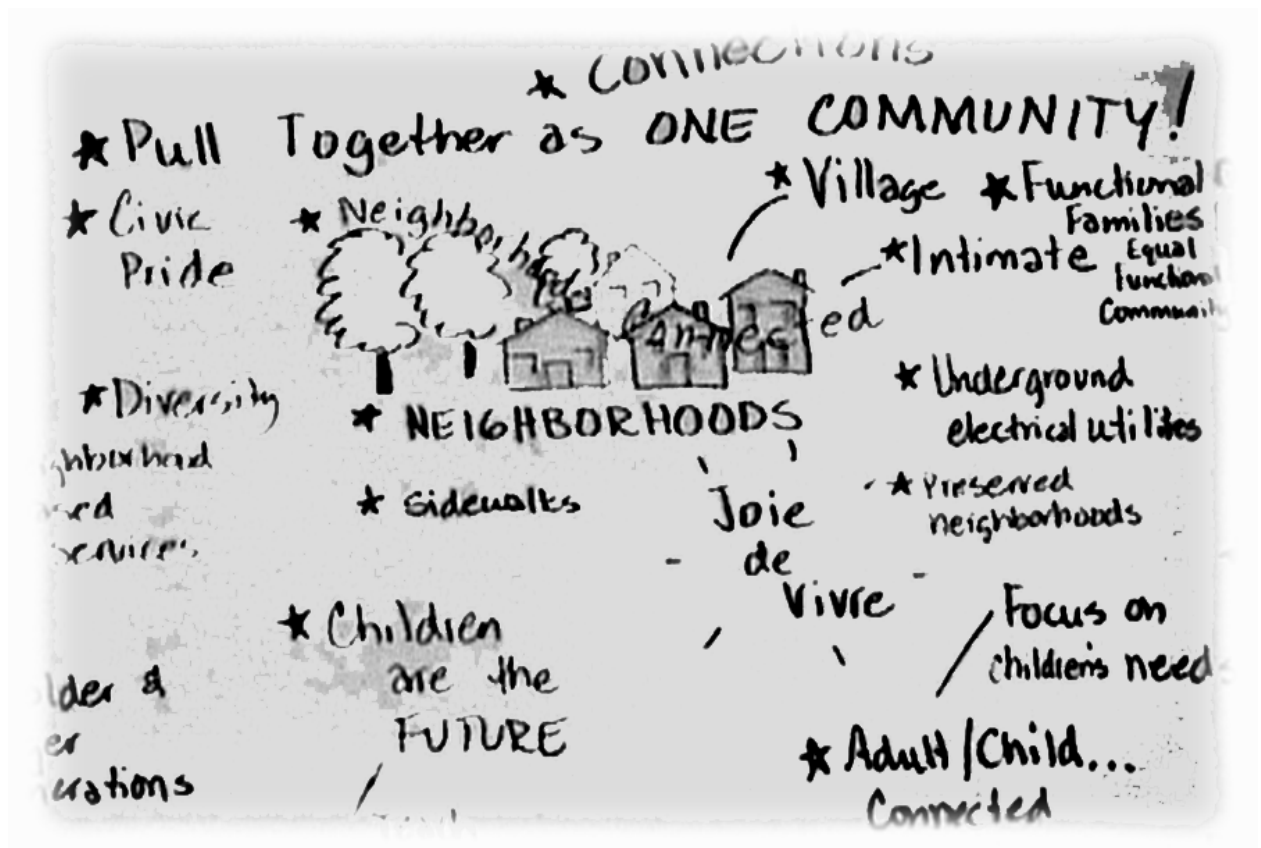 ★ Connections
★ Pull Together as ONE COMMUNITY!
★ Civic
Pride
★ Neighborhoods
Connected
★ Village
★ Functional
Families
Equal
functional
Community
★ Intimate
★ Diversity
★ NEIGHBORHOODS
★ Underground
electrical utilites
ghborhood
sed
services
★ Sidewalks
Joie
de
Vivre
★ Preserved
neighborhoods
★ Children
are the
FUTURE
Focus on
children's need
lder &
er
erations
★ Adult/Child...
Connected